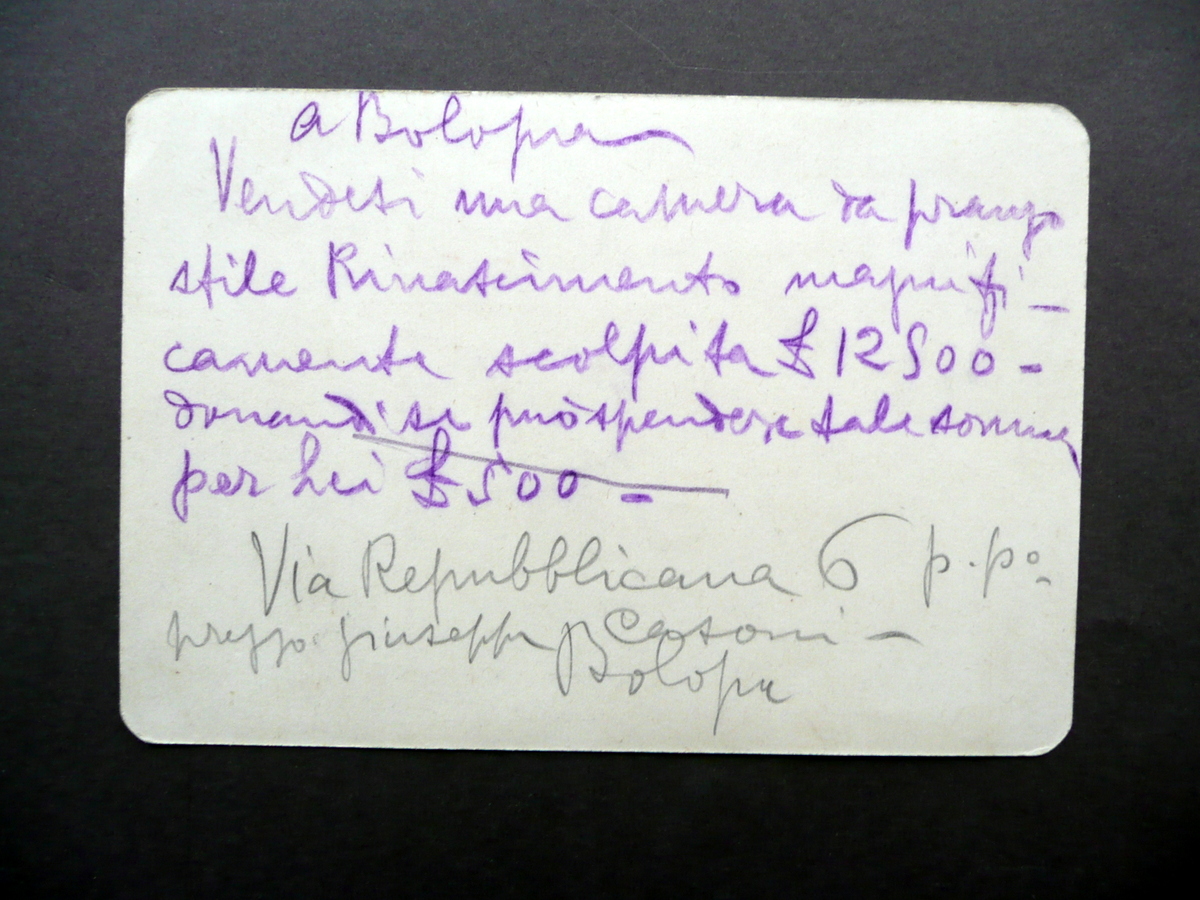 a Bologna
Vendesi una camera da pranzo
stile Rinascimento magnifi-
camente scolpita £ 12500 -
domandi se può spendere tale somma
per Lei £ 500 -
Via Repubblicana 6 p. po.
presso Giuseppe Casoni -
Bologna